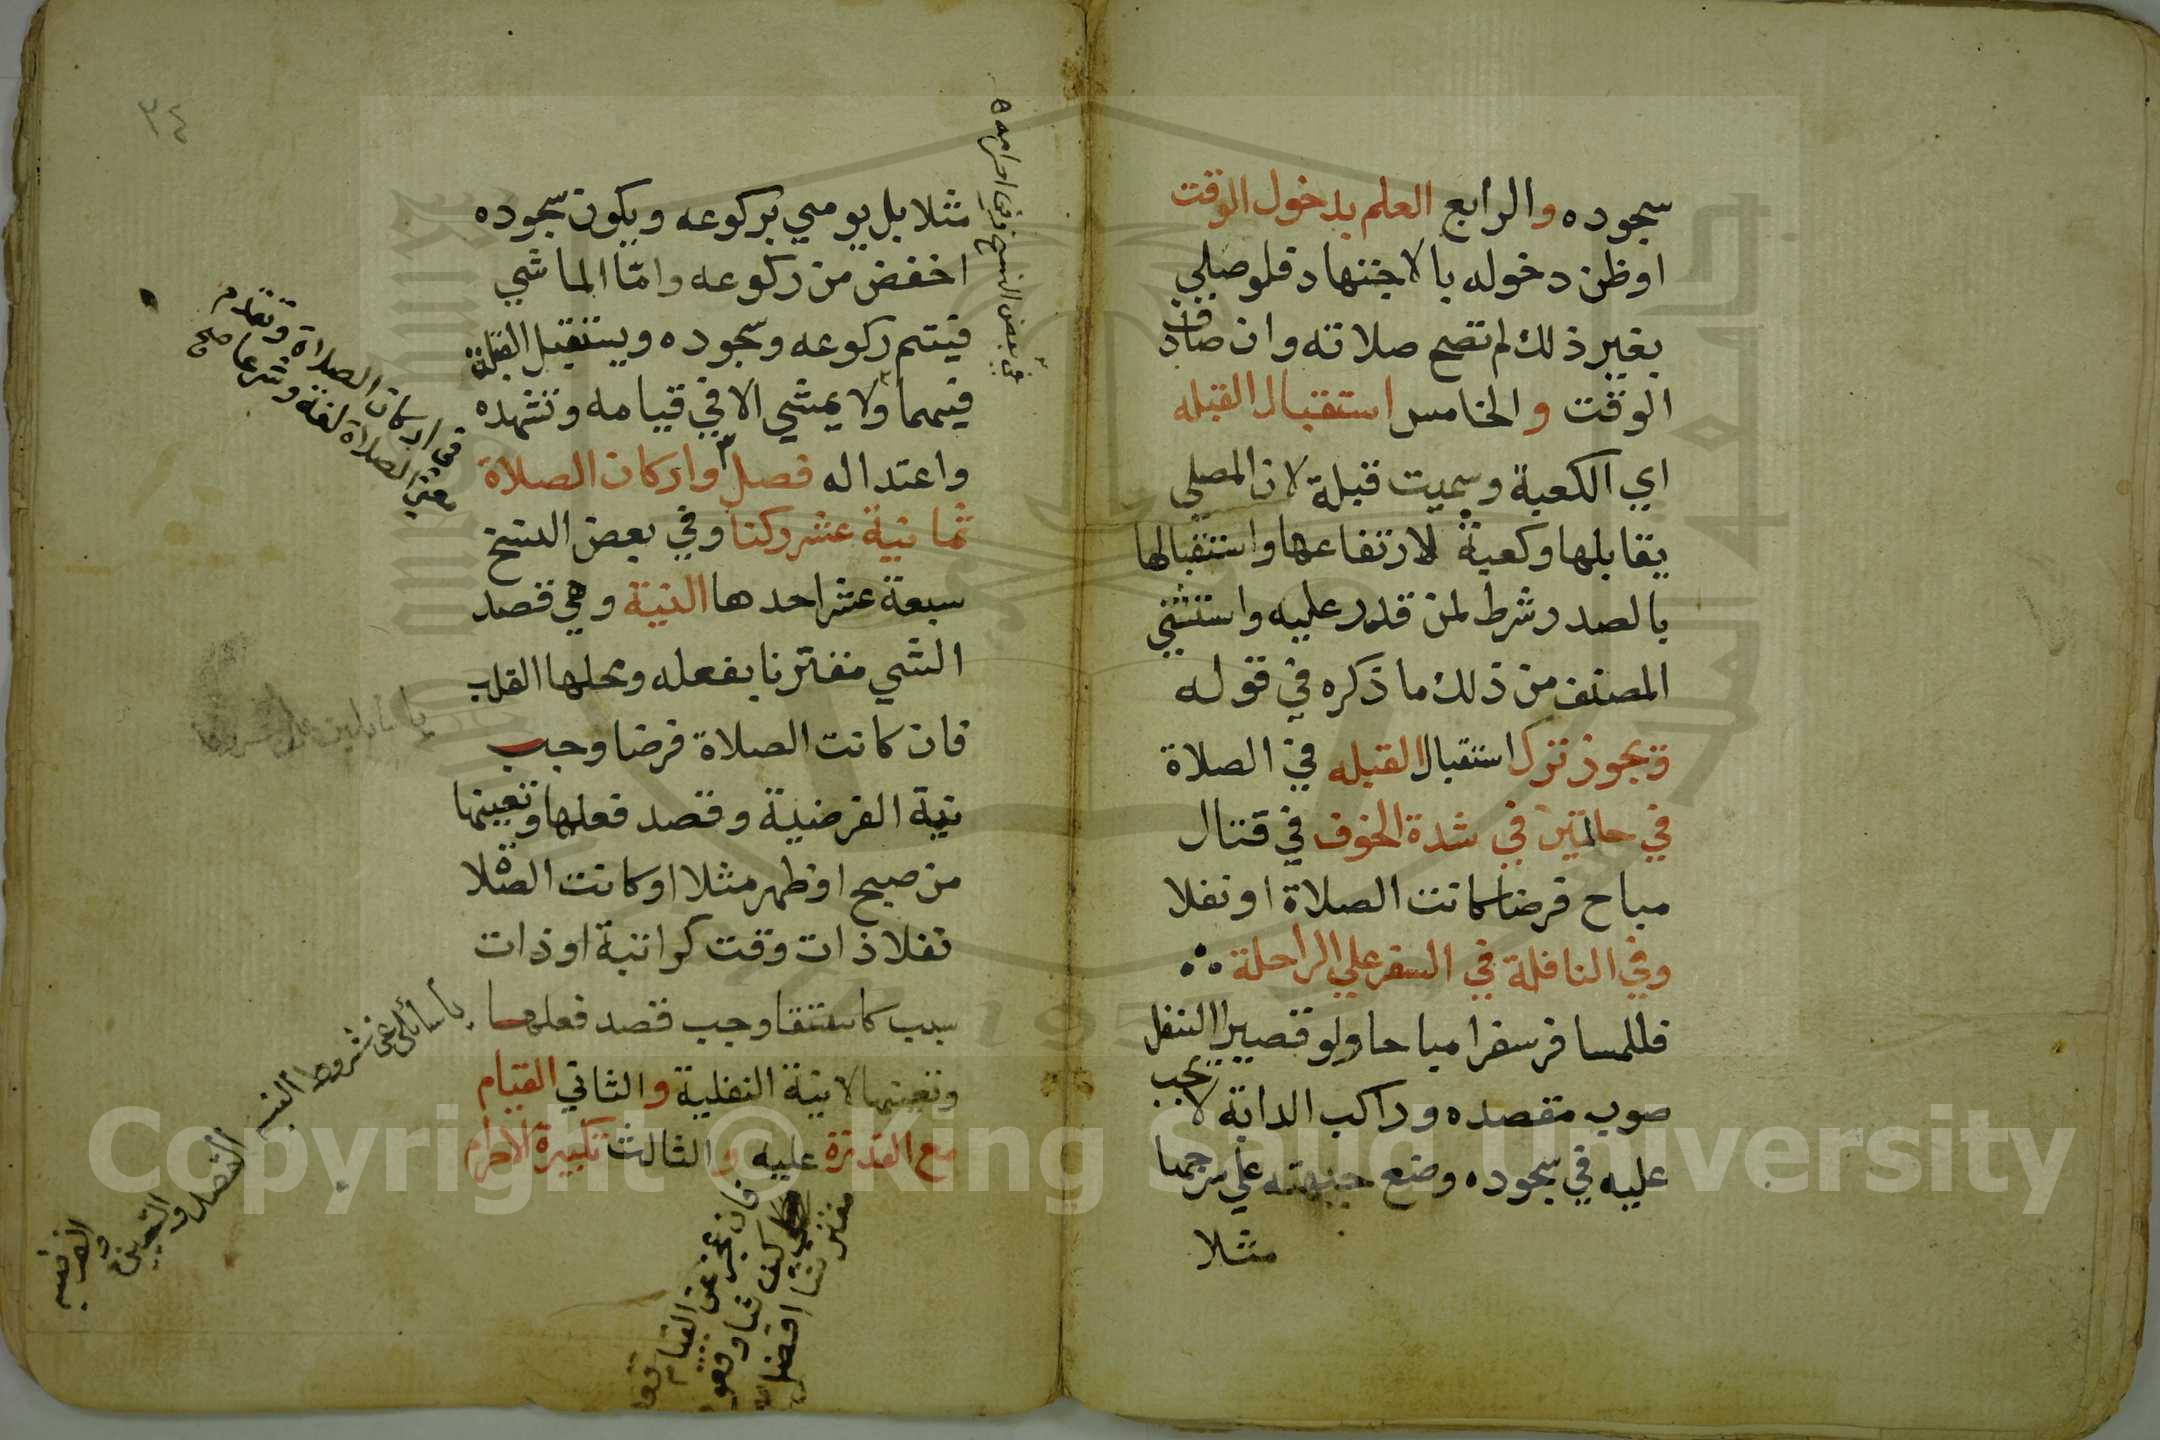 سجوده والرابع العلم بدخول الوقت
اوظن دخوله بالاجتهاد فلوصلي
بغير ذلك لم تصح صلاته وان صادف
الوقت والخامس استقبال القبله
اي الكعبة وسميت قبلة لان المصلي
يقابلها وكعبة لارتفاعها واستقبالها
بالصدر شرط لمن قدر عليه واستثني
المصنف من ذلك ما ذكره في قوله
ويجوز ترك استقبال القبله في الصلاة
في حالتين في شدة الخوف في قتال
مباح فرضا كانت الصلاة او نفلا
وفي النافلة في السفر علي الراحلة
فللمسافر سفرا مباحا ولو قصيرا التنفل
صوب مقصده وراكب الدابة لا يجب
عليه في سجوده وضع جبهته علي سرجها
مثلا
٣٤
مثلا بل يومي بركوعه ويكون سجوده
اخفض من ركوعه وامّا الماشي
فيتم ركوعه وسجوده ويستقبل القبلة
فيهما ولا يمشي الا في قيامه وتشهده
واعتداله فصل واركان الصلاة
ثمانية عشر ركنا وفي بعض النسخ
سبعة عشر احدها النية وهي قصد
الشي مقترنا بفعله ومحلها القلب
فان كانت الصلاة فرضا وجب
نية الفرضية وقصد فعلها وتعيينها
من صبح او ظهر مثلا او كانت الصلاة
نفلا ذات وقت كراتبة او ذات
سبب كاستسقا وجب قصد فعلها
وتعينها لا نية النفلية والثاني القيام
مع القدرة عليه والثالث تكبيرة الاحرام
في بعض النسخ
الصلاة وتقدم
معني الصلاة لغة وشرعا صح
يا سائلي عن شروط النيه
القصد والتعيين والفرضيه
فان عجز عن القيام قعد
كيف شا وقعوده
مفترشا افضل